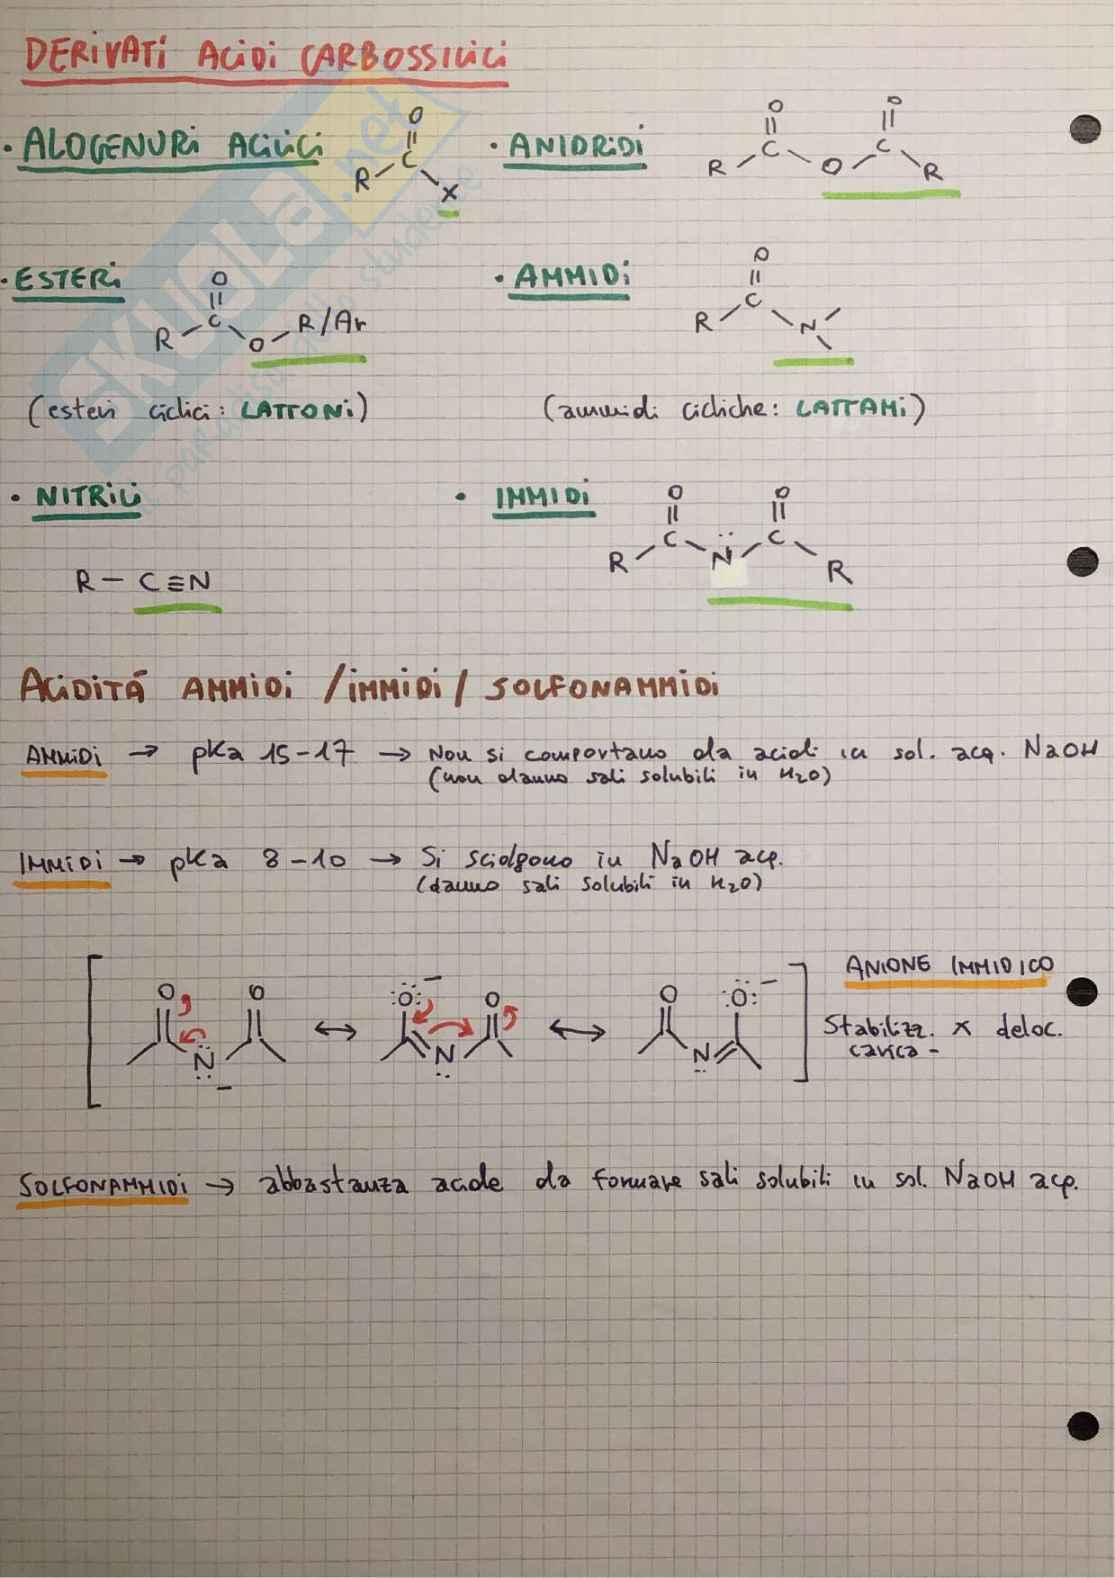 DERIVATI ACIDI CARBOSSILICI
• ALOGENURI ACILICI
O
C
R
X
• ANIDRIDI
O O
C C
R O R
• ESTERI
O
C R/Ar
R O
(esteri ciclici: LATTONI)
• AMMIDI
O
C
R N
(ammidi cicliche: LATTAMI)
• NITRILI
R – C≡N
• IMMIDI
O O
C C
R N R
ACIDITÁ AMMIDI /IMMIDI/ SOLFONAMMIDI
AMMIDI → pKa 15-17 → Non si comportano da acidi in sol. acq. NaOH
(non danno sali solubili in H2O)
IMMIDI → pKa 8-10 → Si sciolgono in NaOH acq.
(danno sali solubili in H2O)
O O ↔ O – O ↔ O O –
N – N N
ANIONE IMMIDICO
Stabilizz. x deloc.
carica -
SOLFONAMMIDI → abbastanza acide da formare sali solubili in sol. NaOH acq.
SKUOLA.net